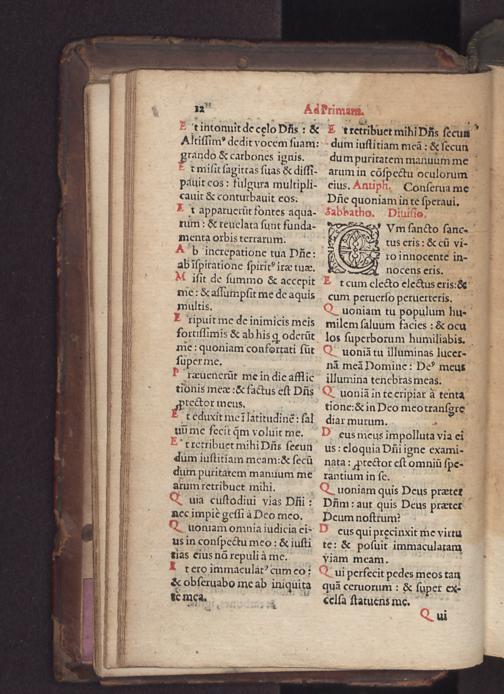 12
Ad Primam.
Et intonuit de cęlo Dñs : &
Altissimꝰ dedit vocem suam:
grando & carbones ignis.
Et misit sagittas suas & dissi-
pauit eos : fulgura multipli-
cauit & conturbauit eos.
Et apparuerũt fontes aqua-
rum : & reuelata sunt funda-
menta orbis terrarum.
Ab increpatione tua Dñe:
ab ĩspiratione spiritꝰ iræ tuæ.
Misit de summo & accepit
me : & assumpsit me de aquis
multis.
Eripuit me de inimicis meis
fortissimis & ab his q̨ oderũt
me : quoniam confortati sũt
super me.
Præuenerũt me in die afflic
tionis meæ : & factus est Dñs
ꝓtector meus.
Et eduxit me ĩ latitudinẽ : sal
uũ me fecit qm̃ voluit me.
Et retribuet mihi Dñs secun
dum iustitiam meam : & secũ
dum puritatem manuum me
arum retribuet mihi.
Quia custodiui vias Dñi :
nec impiè gessi à Deo meo.
Quoniam omnia iudicia ei-
us in conspectu meo : & iusti
tias eius nõ repuli à me.
Et ero immaculatꝰ cum eo :
& obseruabo me ab iniquita
te mea.
Et retribuet mihi Dñs secun
dum iustitiam meã : & secun
dum puritatem manuum me
arum in cõspectu oculorum
eius. Antiph. Conserua me
Dñe quoniam in te speraui.
Sabbatho. Diuisio.
CVm sancto sanc-
tus eris : & cũ vi-
ro innocente in-
nocens eris.
Et cum electo electus eris : &
cum peruerso peruerteris.
Quoniam tu populum hu-
milem saluum facies : & ocu
los superborum humiliabis.
Quoniã tu illuminas lucer-
nã meã Domine : Deꝰ meus
illumina tenebras meas.
Quoniã in te eripiar à tenta
tione : & in Deo meo transgre
diar murum.
Deus meus impolluta via ei
us : eloquia Dñi igne exami-
nata : ꝓtector est omniũ spe-
rantium in se.
Quoniam quis Deus præter
Dñm : aut quis Deus præter
Deum nostrum?
Deus qui precinxit me virtu
te : & posuit immaculatam
viam meam.
Qui perfecit pedes meos tan
quã ceruorum : & super ex-
celsa statuens me.
Qui